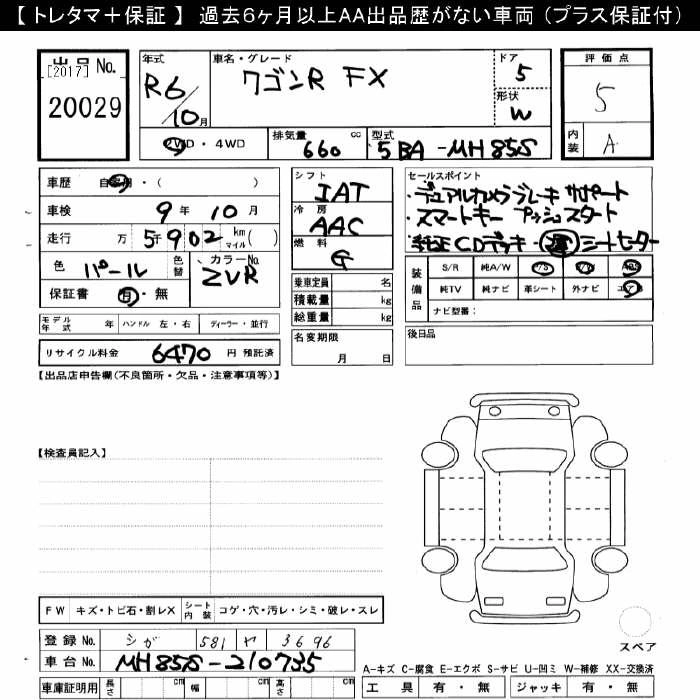 【トレタマ＋保証】 過去6ヶ月以上AA出品歴がない車両（プラス保証付）
出品No. [2017] 20029
年式 R6/10月
車名・グレード ワゴンR FX
ドア 5
形状 W
評価点 5
内装 A
2WD・4WD
排気量 660 cc
型式 5BA-MH85S
車歴 自家用・（ ）
車検 9年10月
走行 万5千902 km マイル（ ）
色 パール 色替 カラーNo. ZVR
保証書 有・無
シフト IAT
冷房 AAC
燃料 G
乗車定員 名
積載量 kg
総重量 kg
セールスポイント
・デュアルカメラブレーキサポート
・スマートキー プッシュスタート
・純正CDデッキ・シートヒーター
装備品 S/R 純A/W P/S P/W ABS
純TV 純ナビ 革シート 外ナビ エアB
ナビ型番：
モデル年式 年 ハンドル 左・右 ディーラー・並行
名変期限 月 日
後日品
リサイクル料金 6470 円 預託済
【出品店申告欄(不良箇所・欠品・注意事項等)】
【検査員記入】
FW キズ・トビ石・割レX シート内装 コゲ・穴・汚レ・シミ・破レ・スレ
登録No. シガ 581 ヤ 3696
車台No. MH85S-210735
車庫証明用 長さ cm 幅 cm 高さ cm
スペア
A-キズ C-腐食 E-エクボ S-サビ U-凹ミ W-補修 XX-交換済
工具 有・無 ジャッキ 有・無